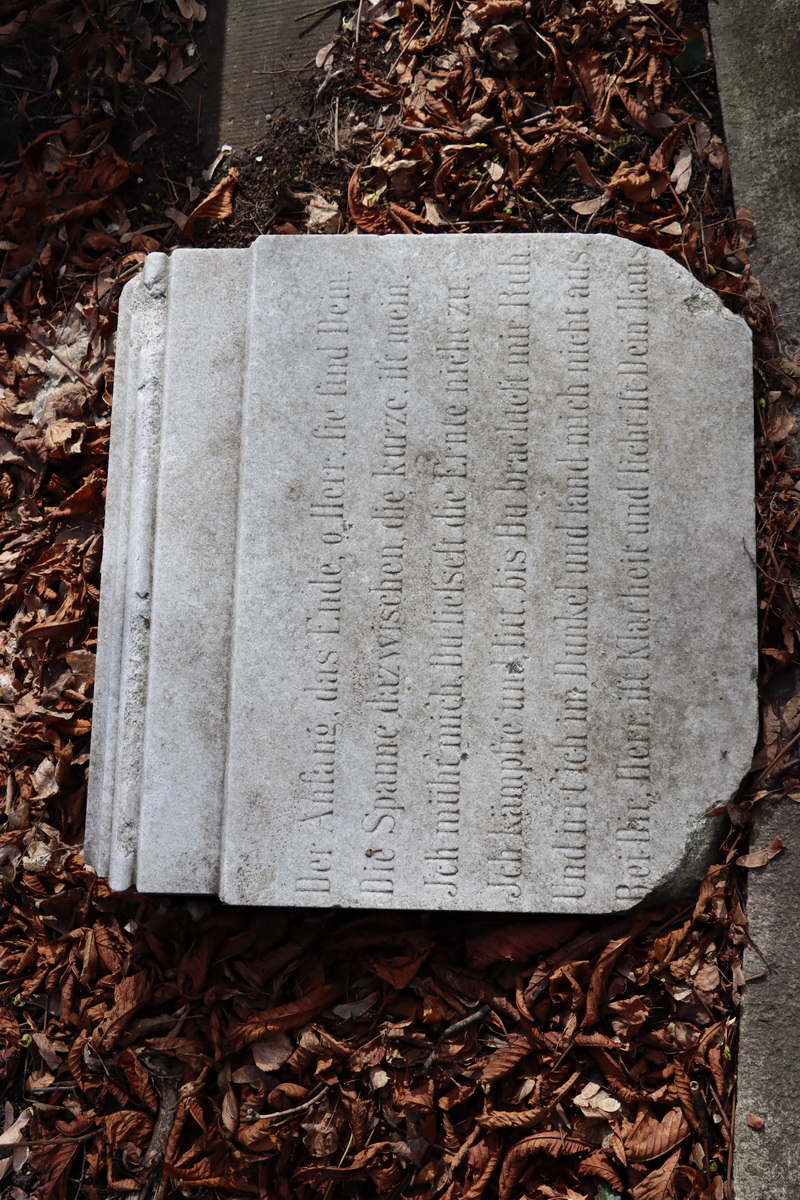 Der Anfang, das Ende, o Herr, ſie ſind Dein,
Die Spanne dazwiſchen, die kurze, iſt mein.
Jch müht' mich, Du lieſseſt die Ernte nicht zu,
Jch kämpfte und litt, bis Du brachteſt mir Ruh.
Und irrt' ich im Dunkel und fand mich nicht aus
Bei Dir, Herr, iſt Klarheit und licht iſt Dein Haus